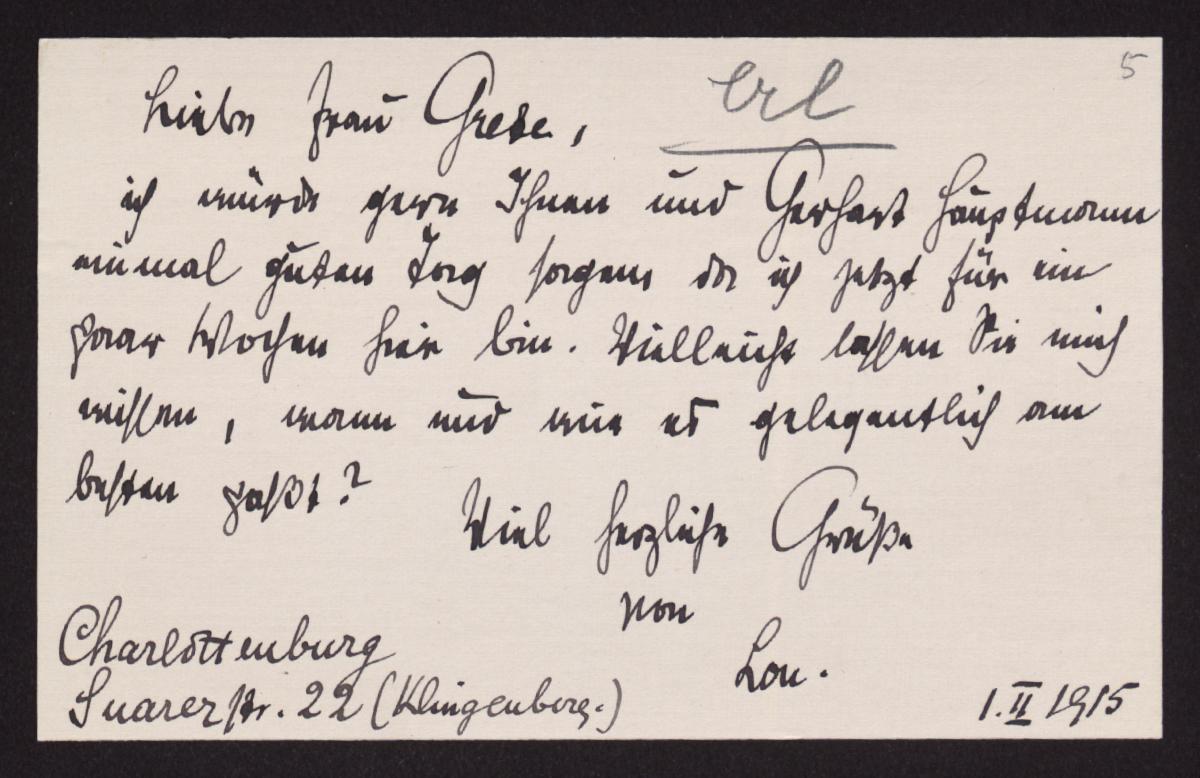 5
erl
Liebe Frau Grete,
ich würde gern Ihnen und Gerhart Hauptmann
einmal guten Tag sagen, da ich jetzt für ein
paar Wochen hier bin. Vielleicht lassen Sie mich
wissen, wann und wie es gelegentlich am
besten paßt?
Viel herzliche Grüße
von
Lou.
Charlottenburg
Suarezstr. 22 (Klingenberg.)
1. II 1915